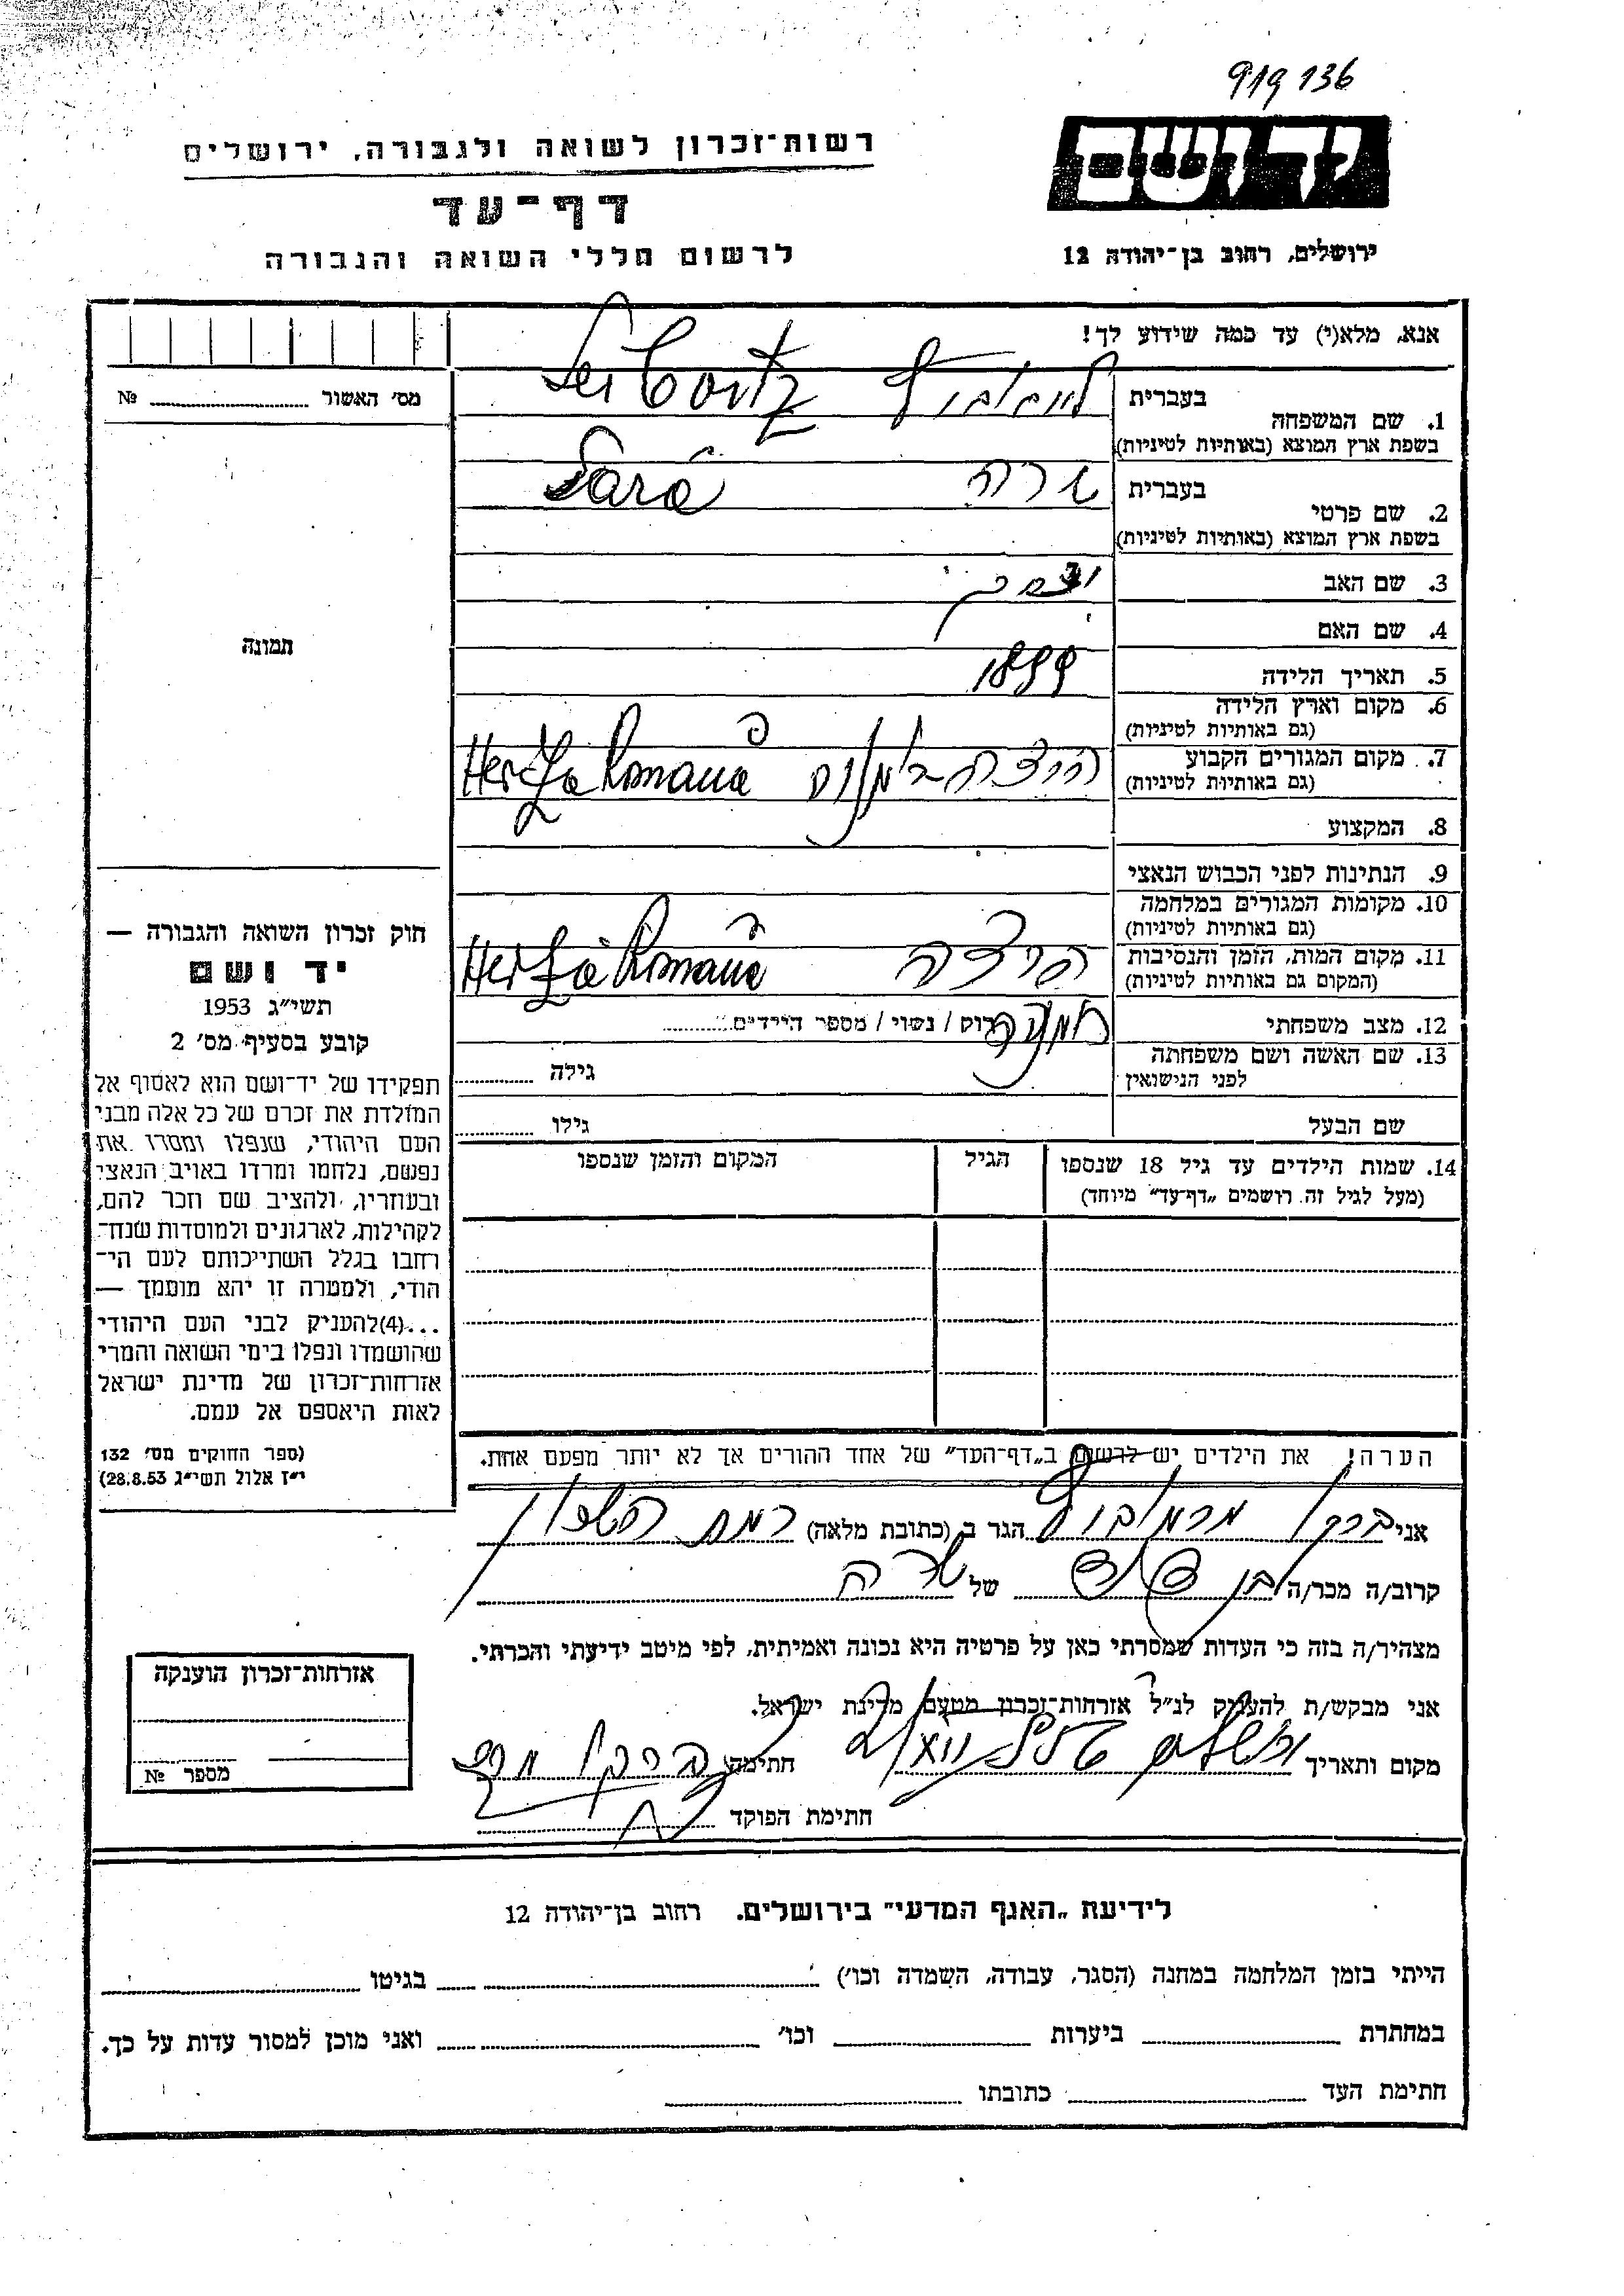 919136
יד ושם
רשות־זכרון לשואה ולגבורה, ירושלים
דף־עד
לרשום חללי השואה והגבורה
ירושלים, רחוב בן־יהודה 12
אנא, מלא(י) עד כמה שידוע לך!
מס׳ האשור № 
תמונה
1. שם המשפחה
בעברית לייבוביץ Leibovitz
בשפת ארץ המוצא (באותיות לטיניות)
2. שם פרטי
בעברית שרה Sara
בשפת ארץ המוצא (באותיות לטיניות)
3. שם האב
4. שם האם
5. תאריך הלידה 1899
6. מקום וארץ הלידה
(גם באותיות לטיניות)
7. מקום המגורים הקבוע הרצה Herța
(גם באותיות לטיניות)
8. המקצוע
9. הנתינות לפני הכבוש הנאצי
10. מקומות המגורים במלחמה
(גם באותיות לטיניות)
11. מקום המות, הזמן והנסיבות הרצה Herța
(המקום גם באותיות לטיניות)
12. מצב משפחתי רוק / נשוי / מספר הילדים
13. שם האשה ושם משפחתה
לפני הנישואין
גילה
שם הבעל גילו
14. שמות הילדים עד גיל 18 שנספו הגיל המקום והזמן שנספו
(מעל לגיל זה רושמים „דף־עד״ מיוחד)
הערה! את הילדים יש לרשום ב„דף־העד״ של אחד ההורים אך לא יותר מפעם אחת.
חוק זכרון השואה והגבורה —
יד ושם
תשי״ג 1953
קובע בסעיף מס׳ 2
תפקידו של יד־ושם הוא לאסוף אל
המולדת את זכרם של כל אלה מבני
העם היהודי, שנפלו ומסרו את
נפשם, נלחמו ומרדו באויב הנאצי
ובעוזריו, ולהציב שם וזכר להם,
לקהילות, לארגונים ולמוסדות שנח־
רחבו בגלל השתייכותם לעם הי־
הודי, ולמטרה זו יהא מוסמך —
...(4)להעניק לבני העם היהודי
שהושמדו ונפלו בימי השואה והמרי
אזרחות־זכרון של מדינת ישראל
לאות היאספם אל עמם.
(ספר החוקים מס׳ 132
י״ז אלול תשי״ג 28.8.53)
אני ברקו הגר ב (כתובת מלאה) רמת השרון
קרוב/ה מכר/ה בן דוד של שרה
מצהיר/ה בזה כי העדות שמסרתי כאן על פרטיה היא נכונה ואמיתית, לפי מיטב ידיעתי והכרתי.
אני מבקש/ת להעניק לנ״ל אזרחות־זכרון מטעם מדינת ישראל.
מקום ותאריך ירושלים חתימה ברקו
חתימת הפוקד
אזרחות־זכרון הוענקה
מספר №
לידיעת „האגף המדעי״ בירושלים. רחוב בן־יהודה 12
הייתי בזמן המלחמה במחנה (הסגר, עבודה, השמדה וכו׳) בגיטו
במחתרת ביערות וכו׳ ואני מוכן למסור עדות על כך.
חתימת העד כתובתו